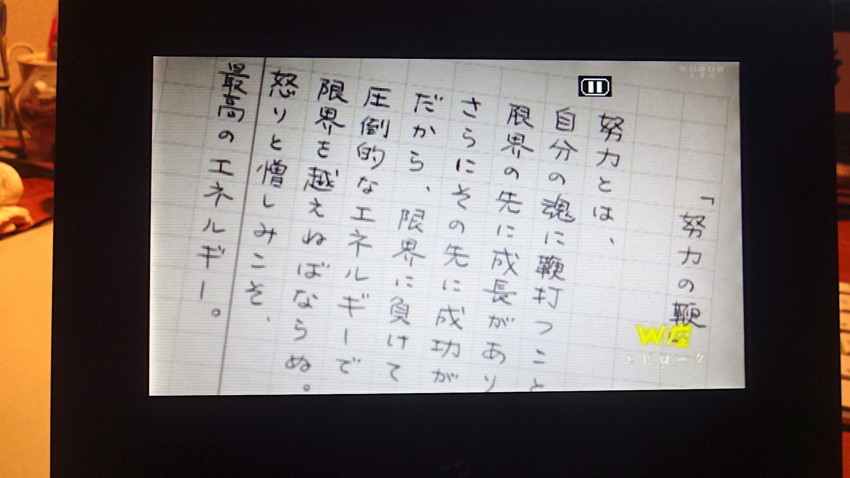 「努力の鞭
努力とは、
自分の魂に鞭打つこと
限界の先に成長があり
さらにその先に成功が
だから、限界に負けて
圧倒的なエネルギーで
限界を越えねばならぬ。
怒りと憎しみこそ、
最高のエネルギー。
WOWOW
W座